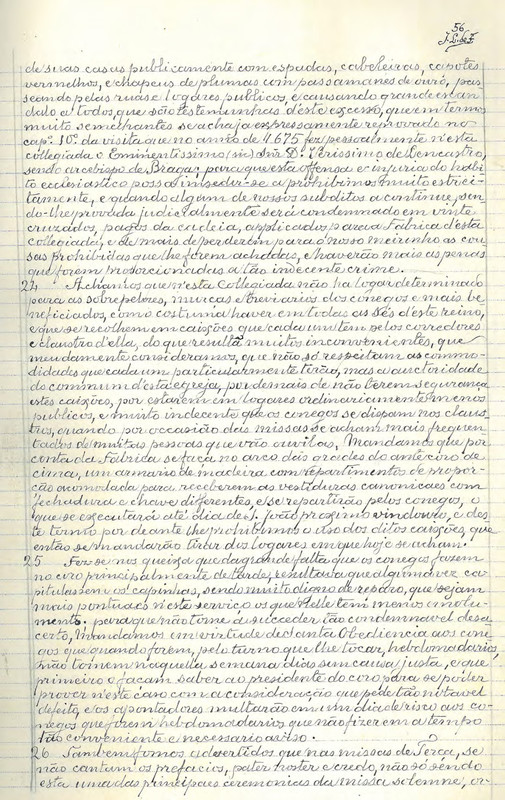 56
J. L. de F.
de suas casas publicamente com espadas, cabeleiras, capotes
vermelhos, e chapeus de plumas com passamanes de ouro, pas
seando pelas ruas e logares publicos, e causando grande escan
dalo a todos, que são testemunhas d'este excesso, que em termos
muito semelhantes se acha já expressamente reprovado no
cap. 10º da visita que no anno de 1.675 fez pessoalmente n'esta
collegiada o Eminentissimo (sic) Snr. D. Verissimo de Lencastro,
sendo arcebispo de Braga: para que esta offensa e injuria do habi
to ecclesiastico possa impedir-se a prohibimos muito estrei-
tamente, e quando algum de nossos subditos a continue, sen
do-lhe provada judicialmente será condemnado em vinte
cruzados, pagos da cadeia, applicados para a Fabrica d'esta
collegiada, e de mais de perderem para o nosso meirinho as cou
sas prohibidas que lhe forem achadas, e haverão mais as penas
que forem proporcionadas a tão indecente crime.
24 Achamos que n'esta Collegiada não ha logar determinado
para as sobrepelizes, murças e breviarios dos conegos e mais be
neficiados, como costuma haver em todas as Sés d'este reino,
e que se recolhem em caixões que cada um tem pelos corredores
e claustro d'ella, do que resulta muitos inconvenientes, que
meudamente consideramos, que não só respeitam as commo-
didades que cada um particularmente tiria, mas a auctoridade
do commum d'esta egreja, por demais de não terem segurança
estes caixões, por estarem em logares ordinariamente menos
publicos, e muito indecente que os conegos se dispam nos claus
tros, quando por occasião das missas se acham mais frequen
tados de muitas pessoas que vão ouvil-as, Mandamos que por
conta da Fabrida se faça no arco das grades do antecoro de
cima, um armario de madeira com repartimentos de propor-
ção acomodada para receberem as vestiduras canonicaes com
fechadura e chave differentes, e se repartirão pelos conegos, o
que se executará até o dia de S. João proximo vindouro, e des
te termo por deante lhe prohibimos o uso dos ditos caixões, que
então se mandarão tirar dos logares em que hoje se acham.
25 Fez-se-nos queixa que da grande falta que os conegos fazem
no coro principalmente de tarde, resultava que alguma vez ca
pitulassem os capinhas, sendo muito digno de reparo, que sejam
mais pontuaes n'este serviço os que n'elle tem menos emolu-
mento: para que não torne a succeder tão condemnavel desa
certo, Mandamos em virtude de Santa Obediencia aos cone
gos que quando forem, pelo turno que lhe tocar, hebdomadarios,
não tomem naquella semana dias sem causa justa, e que
primeiro o façam saber ao presidente do coro para se poder
prover n'este caso com a consideracção que pede tão notavel
defeito, e os apontadores multarão em um dia de risco aos co-
negos que forem hebdomadarios que não fizerem a tempo
tão conveniente e necessario aviso.
26 Tambem fomos advertidos que nas missas de Terça, se
não cantam os prefacios, pater noster e credo, não só sendo
esta uma das principaes ceremonias da missa solemne, or-